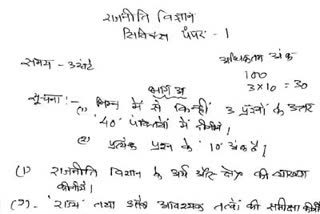 राजनीति विज्ञान
सिविक्स पेपर - I
समय - 3 घंटे
अधिकतम अंक
100
3 x 10 = 30
भाग अ
सूचना :- (1) निम्न में से किन्हीं 3 प्रश्नों के उत्तर
'40' पंक्तियों में दीजिये।
(2) प्रत्येक प्रश्न के '10' अंक है।
(1) राजनीति विज्ञान के अर्थ और क्षेत्र की व्याख्या
कीजिये।
(2). 'राज्य' तथा उसके आवश्यक तत्वों की समीक्षा कीजिये